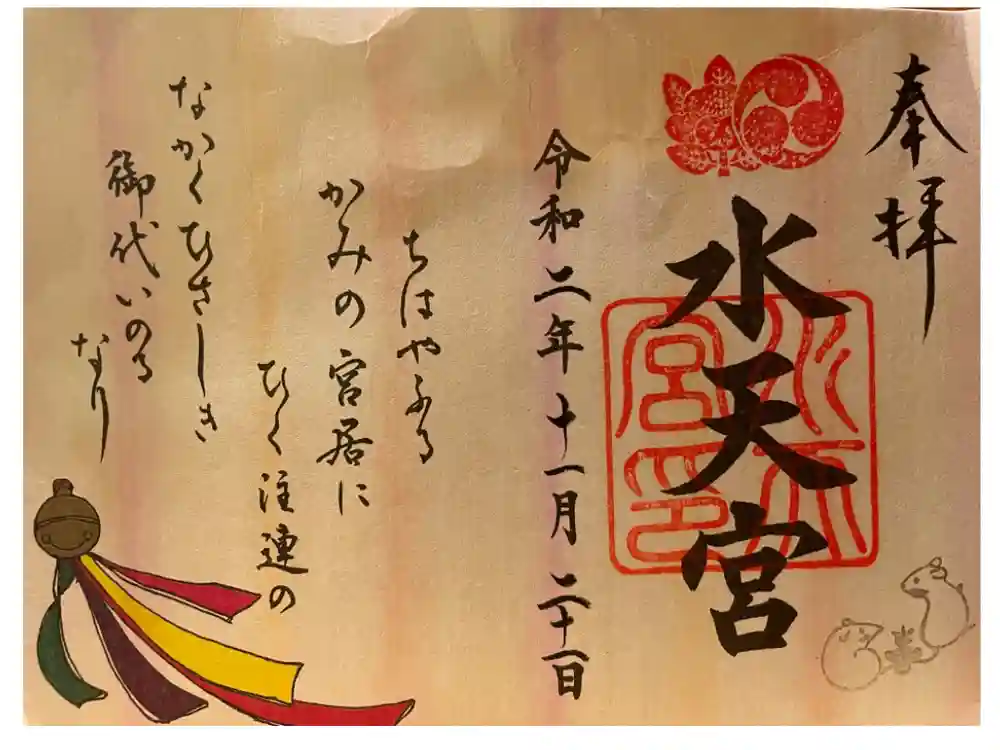 奉拝
水天宮
令和二年十一月二十一日
ちはやふる
かみの宮居に
ひく注連の
なかくひさしき
御代いのる
なり